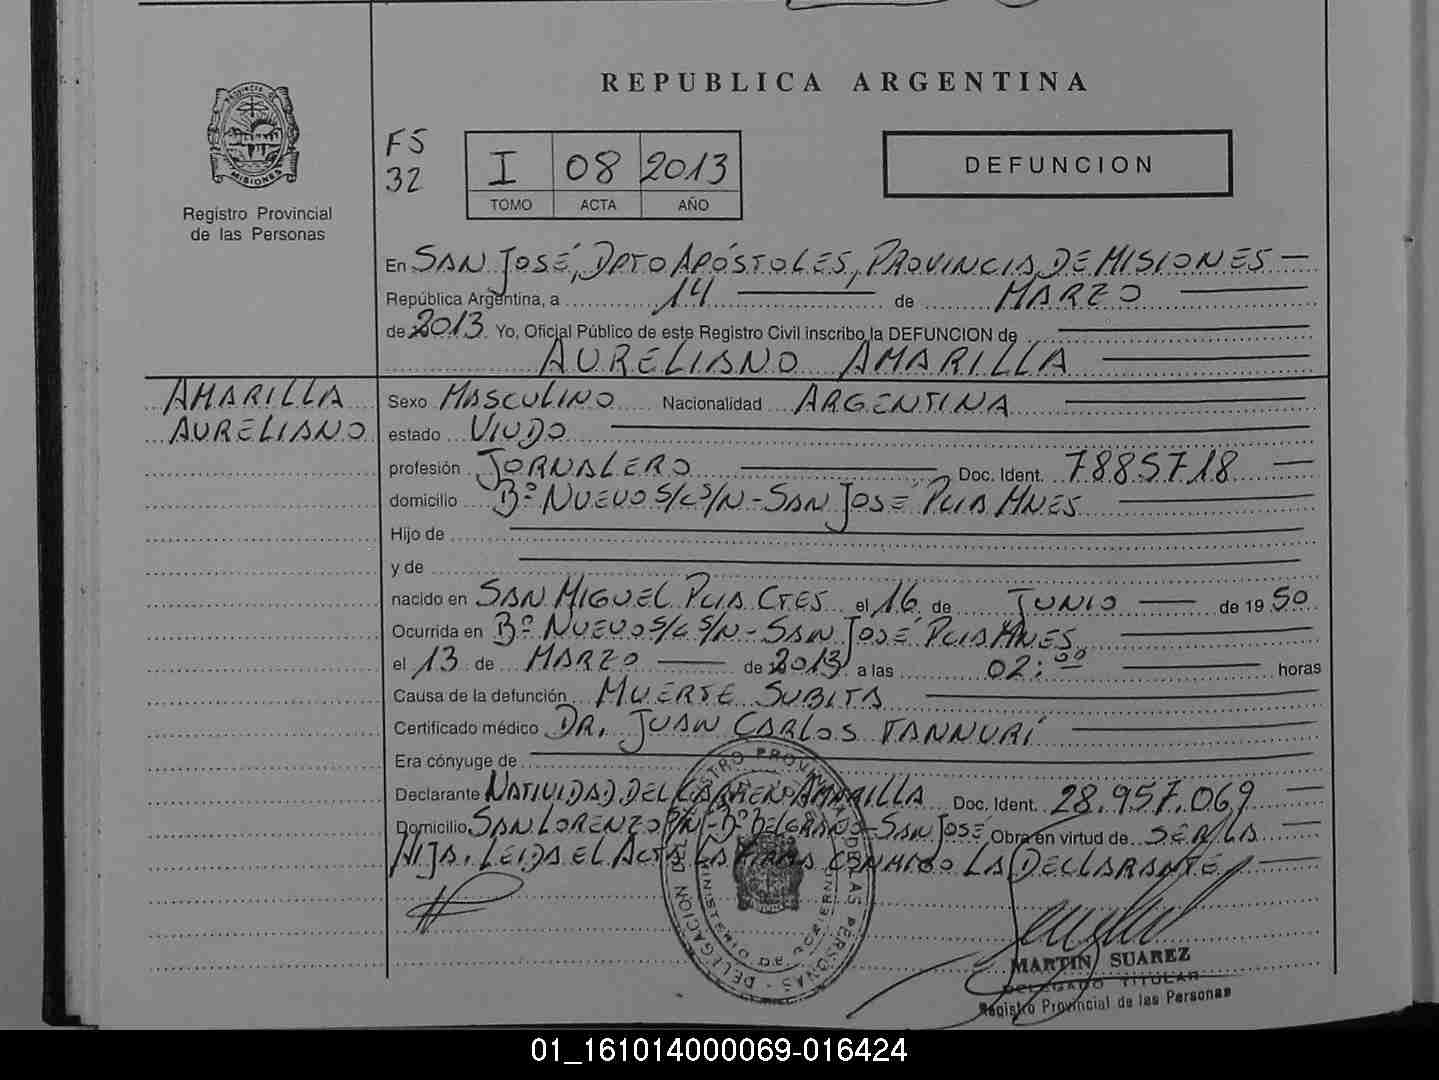 REPUBLICA ARGENTINA
PROVINCIA DE
MISIONES
Registro Provincial
de las Personas
FS
32
I 08 2013
TOMO ACTA AÑO
DEFUNCION
En SAN JOSÉ, DPTO APÓSTOLES, PROVINCIA DE MISIONES
República Argentina, a 14 de MARZO
de 2013 Yo, Oficial Público de este Registro Civil inscribo la DEFUNCION de
AURELIANO AMARILLA
AMARILLA
AURELIANO
Sexo MASCULINO Nacionalidad ARGENTINA
estado VIUDO
profesión JORNALERO Doc. Ident. 7885718
domicilio Bº NUEVO S/C S/N - SAN JOSÉ PCIA MNES
Hijo de
y de
nacido en SAN MIGUEL PCIA CTES el 16 de JUNIO de 1950
Ocurrida en Bº NUEVO S/C S/N - SAN JOSÉ PCIA MNES
el 13 de MARZO de 2013 a las 02:00 horas
Causa de la defunción MUERTE SUBITA
Certificado médico DR. JUAN CARLOS TANNURI
Era cónyuge de
Declarante NATIVIDAD DEL CARMEN AMARILLA Doc. Ident. 28.957.069
Domicilio SAN LORENZO S/N - Bº BELGRANO - SAN JOSÉ Obra en virtud de SER LA
HIJA. LEIDA EL ACTA LA FIRMA CONMIGO LA DECLARANTE
DELEGACION DEL REGISTRO PROVINCIAL DE LAS PERSONAS
MINISTERIO DE GOBIERNO
MARTIN SUAREZ
DELEGADO TITULAR
Registro Provincial de las Personas
01_161014000069-016424